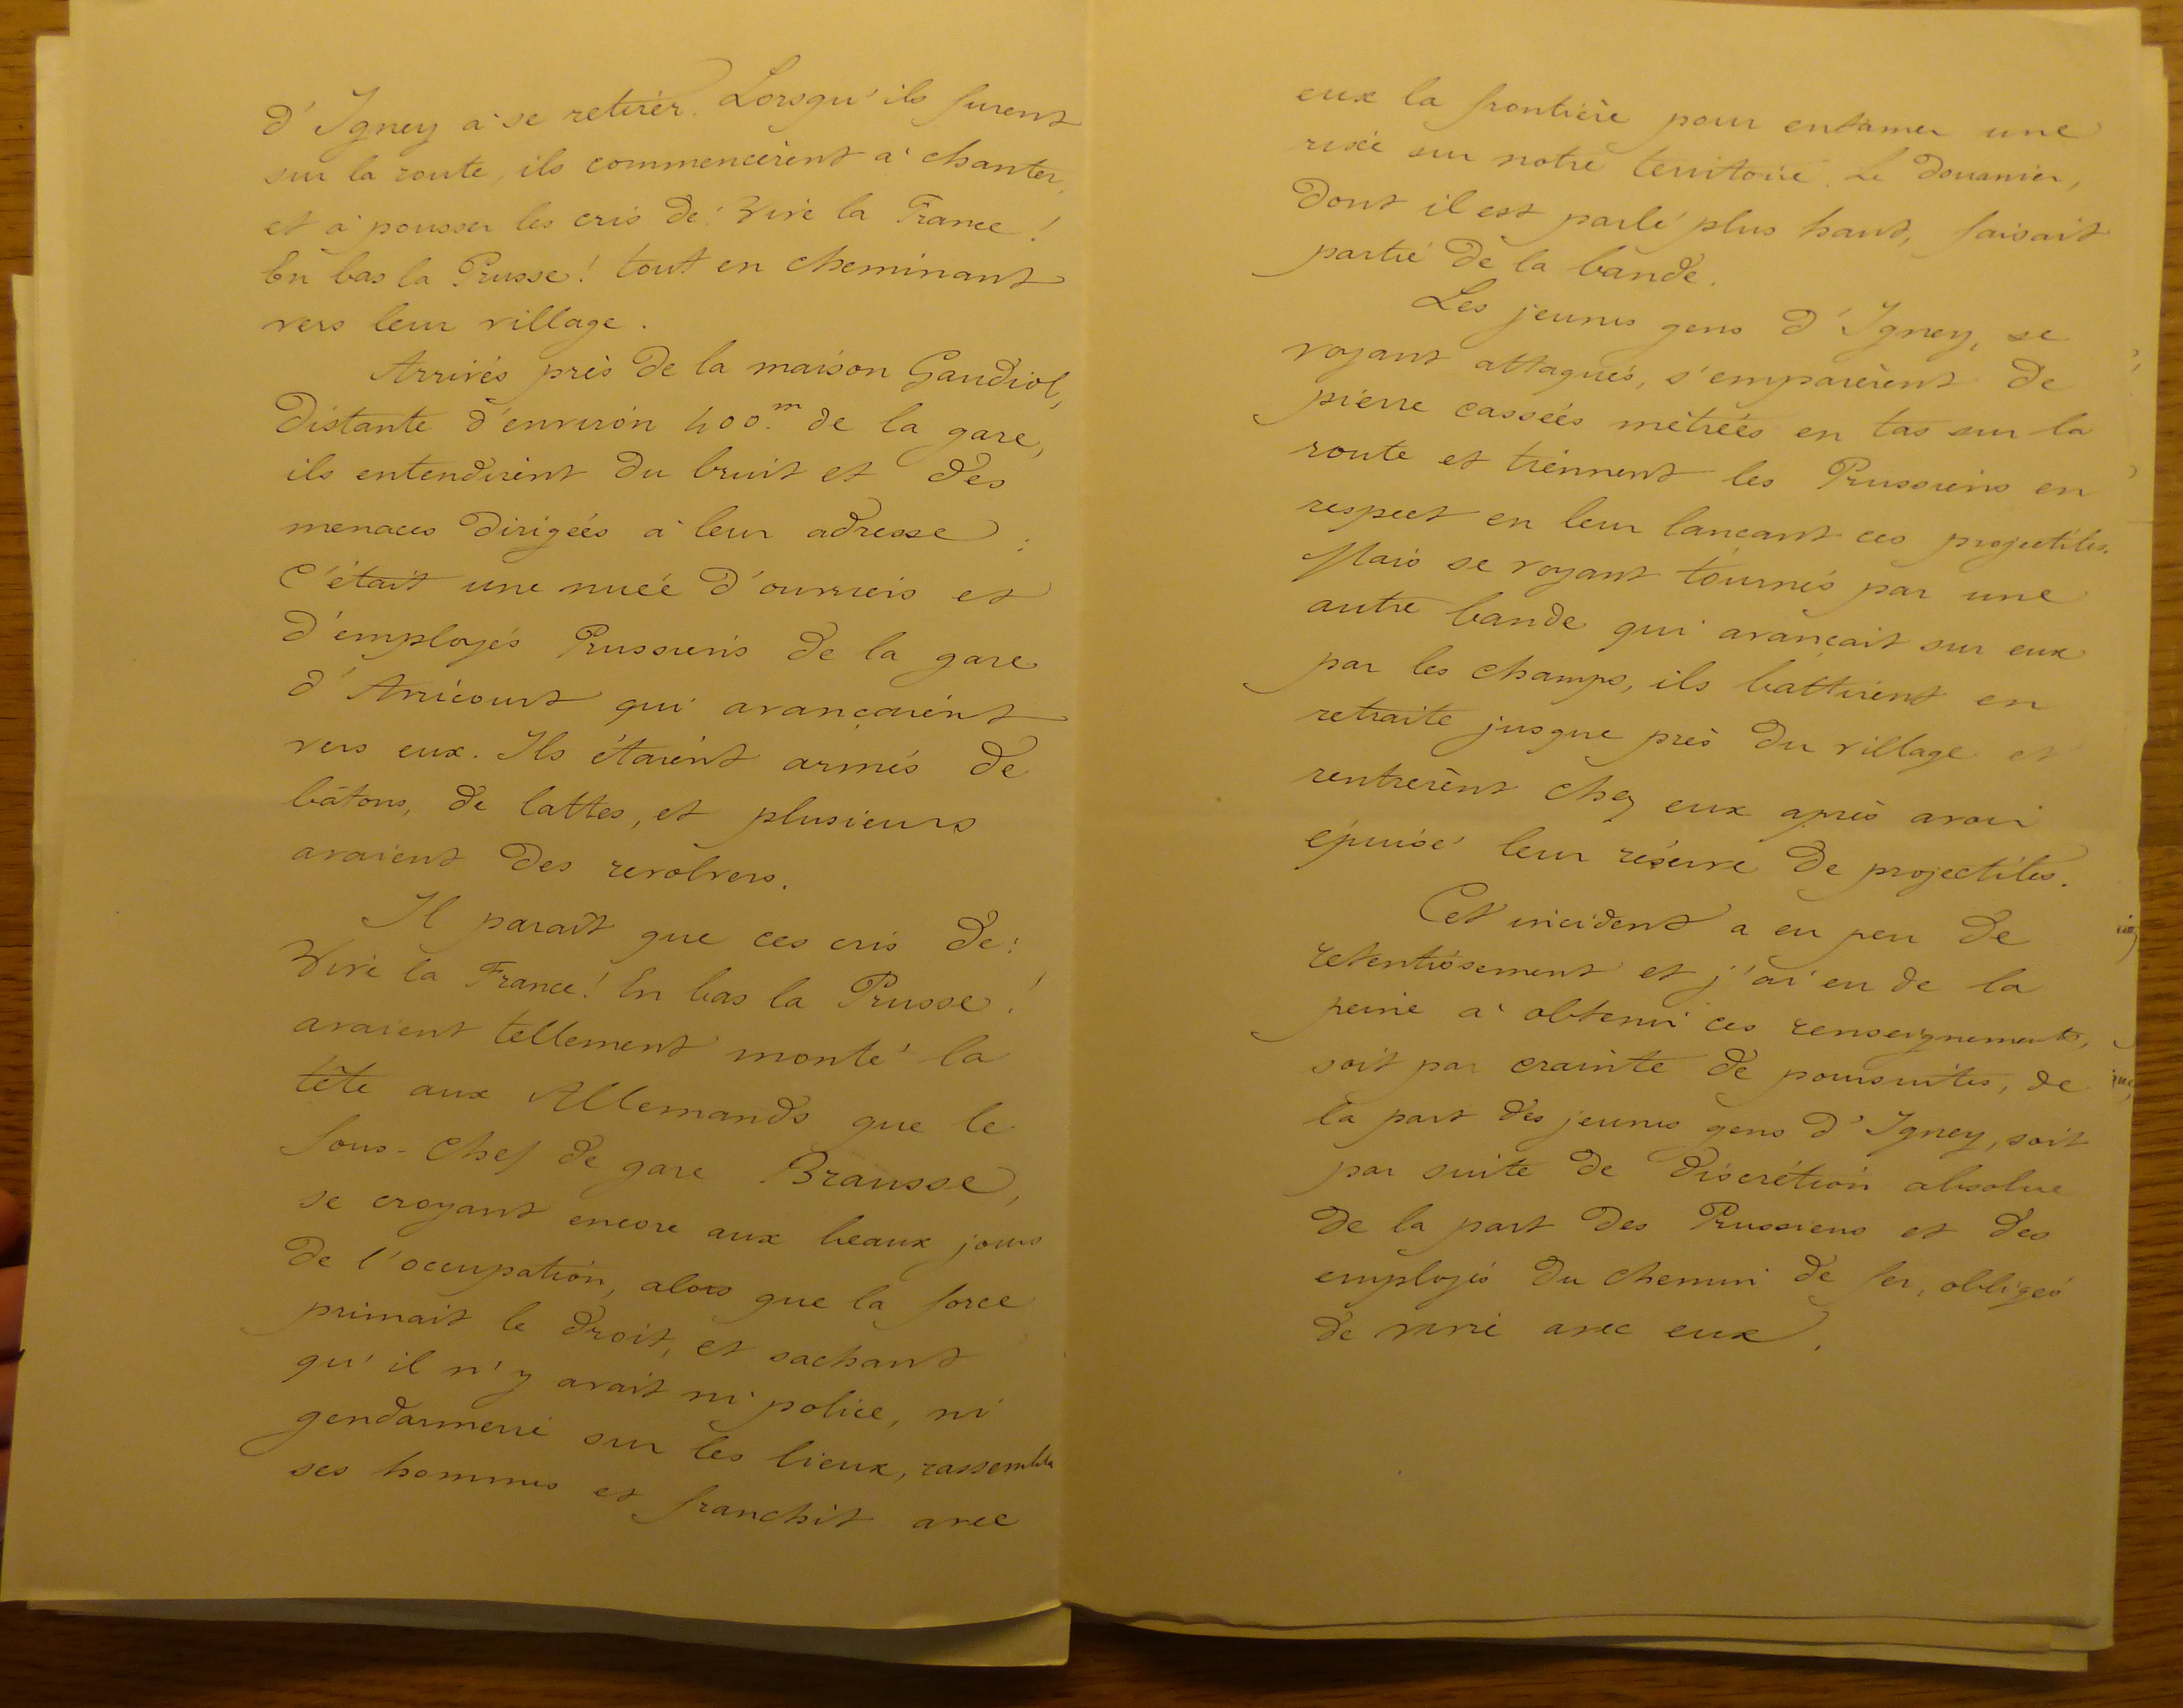 d'Igney à se retirer. Lorsqu'ils furent
sur la route, ils commencèrent à chanter,
et à pousser les cris de: Vive la France!
En bas la Prusse! tout en cheminant
vers leur village.
Arrivés près de la maison Gaudiol,
distante d'environ 400.m de la gare,
ils entendirent du bruit et des
menaces dirigées à leur adresse:
C'était une nuée d'ouvriers et
d'employés Prussiens de la gare
d'Avricourt qui avançaient
vers eux. Ils étaient armés de
bâtons, de lattes, et plusieurs
avaient des revolvers.
Il paraît que ces cris de:
Vive la France! En bas la Prusse!
avaient tellement monté la
tête aux Allemands que le
Sous-Chef de gare Brausse,
se croyant encore aux beaux jours
de l'occupation, alors que la force
primait le droit, et sachant
qu'il n'y avait ni police, ni
gendarmerie sur les lieux, rassembla
ses hommes et franchit avec
eux la frontière pour entamer une
rixe sur notre territoire. Le douanier,
dont il est parlé plus haut, faisait
partie de la bande.
Les jeunes gens d'Igney, se
voyant attaqués, s'emparèrent de
pierre cassées métrées en tas sur la
route et tiennent les Prussiens en
respect en leur lançant ces projectiles.
Mais se voyant tournés par une
autre bande qui avançait sur eux
par les champs, ils battirent en
retraite jusque près du village et
rentrèrent chez eux après avoir
épuisé leur réserve de projectiles.
Cet incident a eu peu de
retentissement et j'ai eu de la
peine à obtenir ces renseignements,
soit par crainte de poursuites, de
la part des jeunes gens d'Igney, soit
par suite de discrétion absolue
de la part des Prussiens et des
employés du chemin de fer, obligés
de vivre avec eux.